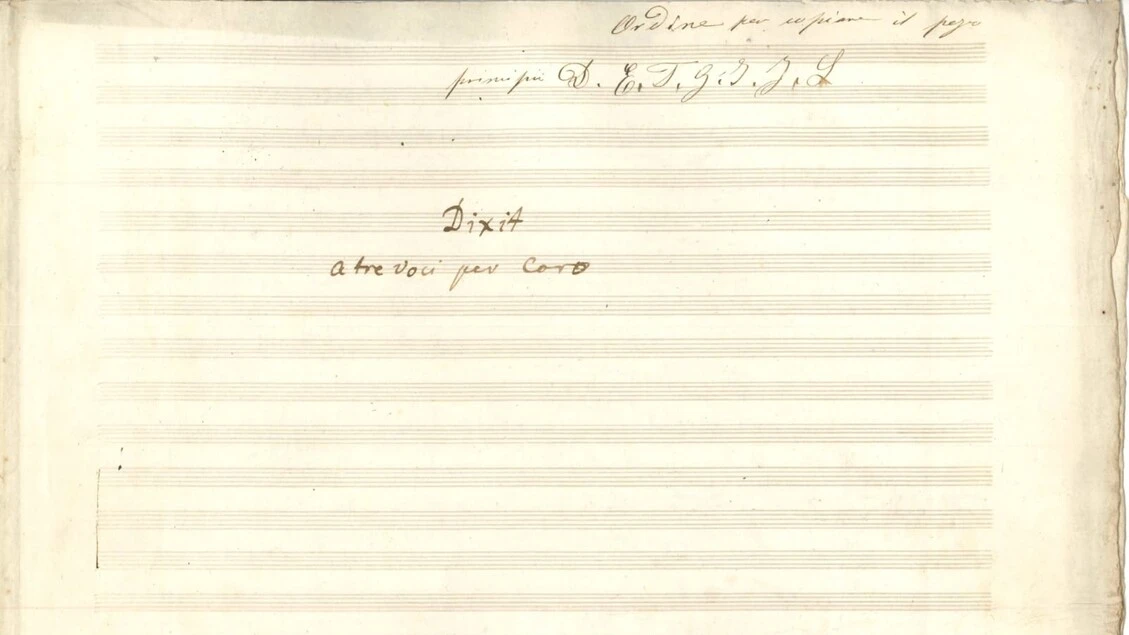 Ordine per copiare il pezo
principii D. E. T. G. I. J. L
Dixit
a tre voci per Coro